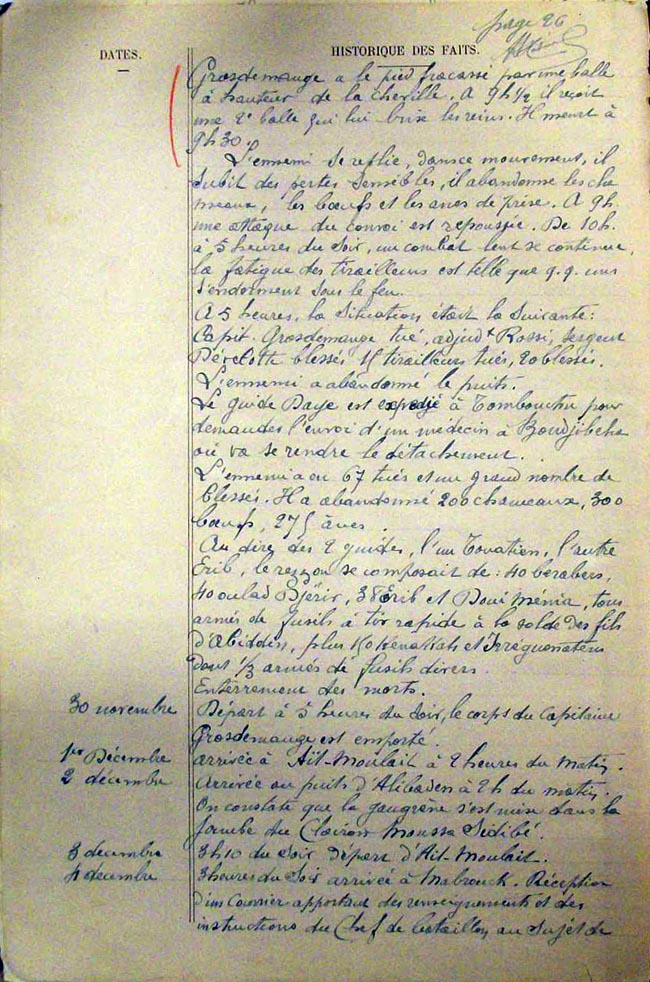 page 26
DATES.
HISTORIQUE DES FAITS.
Grosdemange a le pied fracassé par une balle
à hauteur de la cheville. A 9h ½ il reçoit
une 2e balle qui lui brise les reins. Il meurt à
9h30.
L'ennemi se replie, dans ce mouvement, il
subit des pertes sensibles, il abandonne les cha
meaux, les bœufs et les ânes de prise. A 9h.
une attaque du convoi est repoussée. De 10h.
à 5 heures du soir, un combat lent se continue,
la fatigue des tirailleurs est telle que q.q. uns
s'endorment sous le feu.
A 5 heures, la situation était la suivante:
Capit. Grosdemange tué, adjudt Rossi, sergent
blessés 15 tirailleurs tués, 20 blessés.
L'ennemi a abandonné le puits.
Le guide Daye est expédié à Tombouctou pour
demander l'envoi d'un médecin à Boudjibeha
où va se rendre le détachement.
L'ennemi a eu 67 tués et un grand nombre de
blessés. Il a abandonné 200 chameaux, 300
bœufs, 275 ânes.
Au dire des 2 guides, l'un Touatien, l'autre
Erib, le rezzou se composait de: 40 berabers,
40 oulad Djérir, 38 Erib et Doui Ménia, tous
armés de fusils à tir rapide à la solde des fils
d'Abiddin, plus 150 Kenattah et
dont 1/3 armés de fusils divers.
Enterrement des morts.
30 novembre
Départ à 5 heures du soir, le corps du Capitaine
Grosdemange est emporté.
1er Décembre
arrivée à Aït-Moulait à 2 heures du matin.
2 décembre
Arrivée au puits d'Alibaden à 2h du matin.
On constate que la gangrène s'est mise dans la
jambe du Clairon Moussa Sidibé.
3 décembre
3h10 du soir Départ d'Aït-Moulait.
4 décembre
3 heures du soir arrivée à Mabrouck. Réception
d'un Courrier apportant des renseignements et des
instructions du Chef de bataillon au sujet de